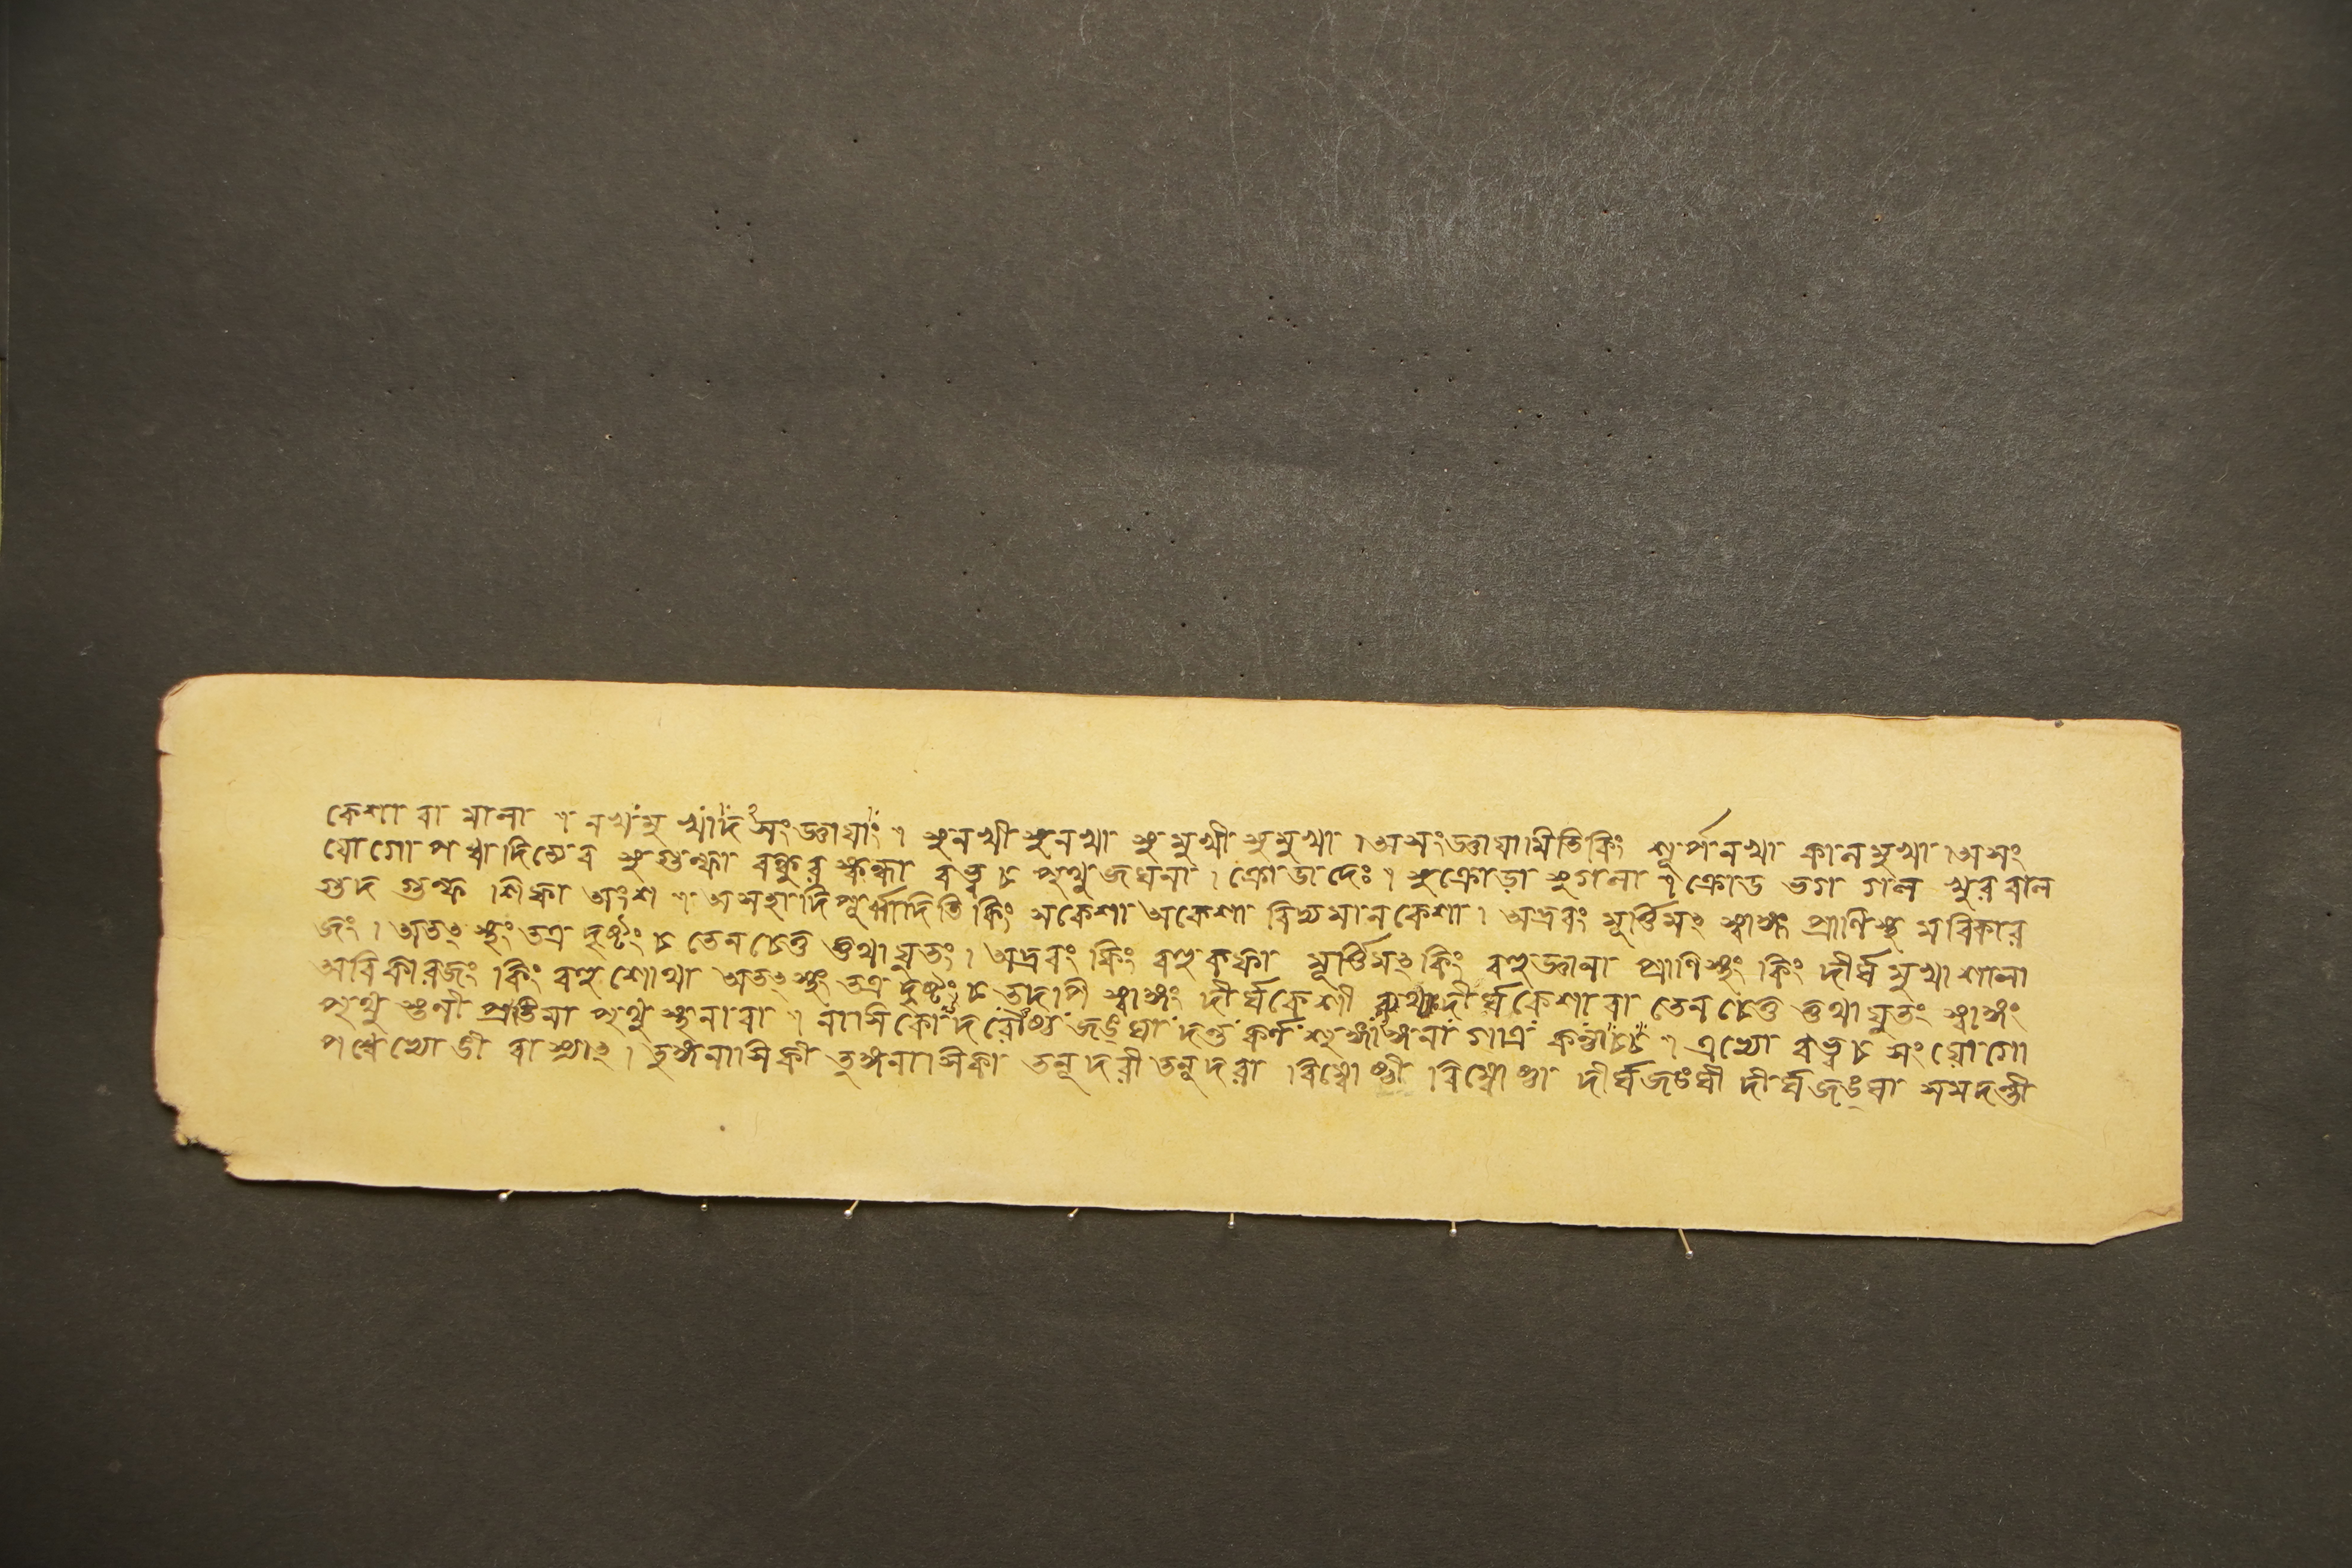 কেশা বা মালা । নখমুখাদসংজ্ঞাযাং । সুনখী সুনখা সুমুখী সুমুখা । অসংজ্ঞাযামিতি কিং শূর্পনখা কালমুখা । অসং
যোগোপধাদিত্যেব সুগুল্ফা বন্ধুরস্কন্ধা বহ্বচ পৃথুজঘনা । ক্রোডাদেঃ । সুক্রোড়া সুগলা । ক্রোড ভগ গল খুর বাল
গুদ গুল্ফ শিফা অংশ । অসহাদিপূর্ব্বাদিতি কিং সকেশা অকেশা বিদ্যমানকেশা । অদ্রবং মূর্ত্তিমৎ স্বাঙ্গং প্রাণিস্থমবিকার
জং । অতৎস্থং তত্র দৃষ্টং চ তেন চেত্তত্তথাযুতং । অদ্রবং কিং বহুকফা মূর্ত্তিমৎ কিং বহুজ্ঞানা প্রাণিস্থং কিং দীর্ঘমুখা শালা
অবিকারজং কিং বহুশোথা অতৎস্থং তত্র দৃষ্টং চ তদাপি স্বাঙ্গং দীর্ঘকেশী রথ্যা দীর্ঘকেশা বা তেন চেত্তত্তথাযুতং স্বাঙ্গং
পৃথুস্তনী প্রতিমা পৃথুস্তনা বা । নাসিকোদরৌষ্ঠজঙ্ঘাদন্তকর্ণশৃঙ্গাঙ্গনা গাত্রকণ্ঠাচ্চ । এভ্যো বহ্বচ সংযোগো
পধেভ্যো ঙী বা স্যাৎ । তুঙ্গনাসিকী তুঙ্গনাসিকা তনূদরী তনূদরা বিম্বোষ্ঠী বিম্বোষ্ঠা দীর্ঘজঙ্ঘী দীর্ঘজঙ্ঘা সমদন্তী